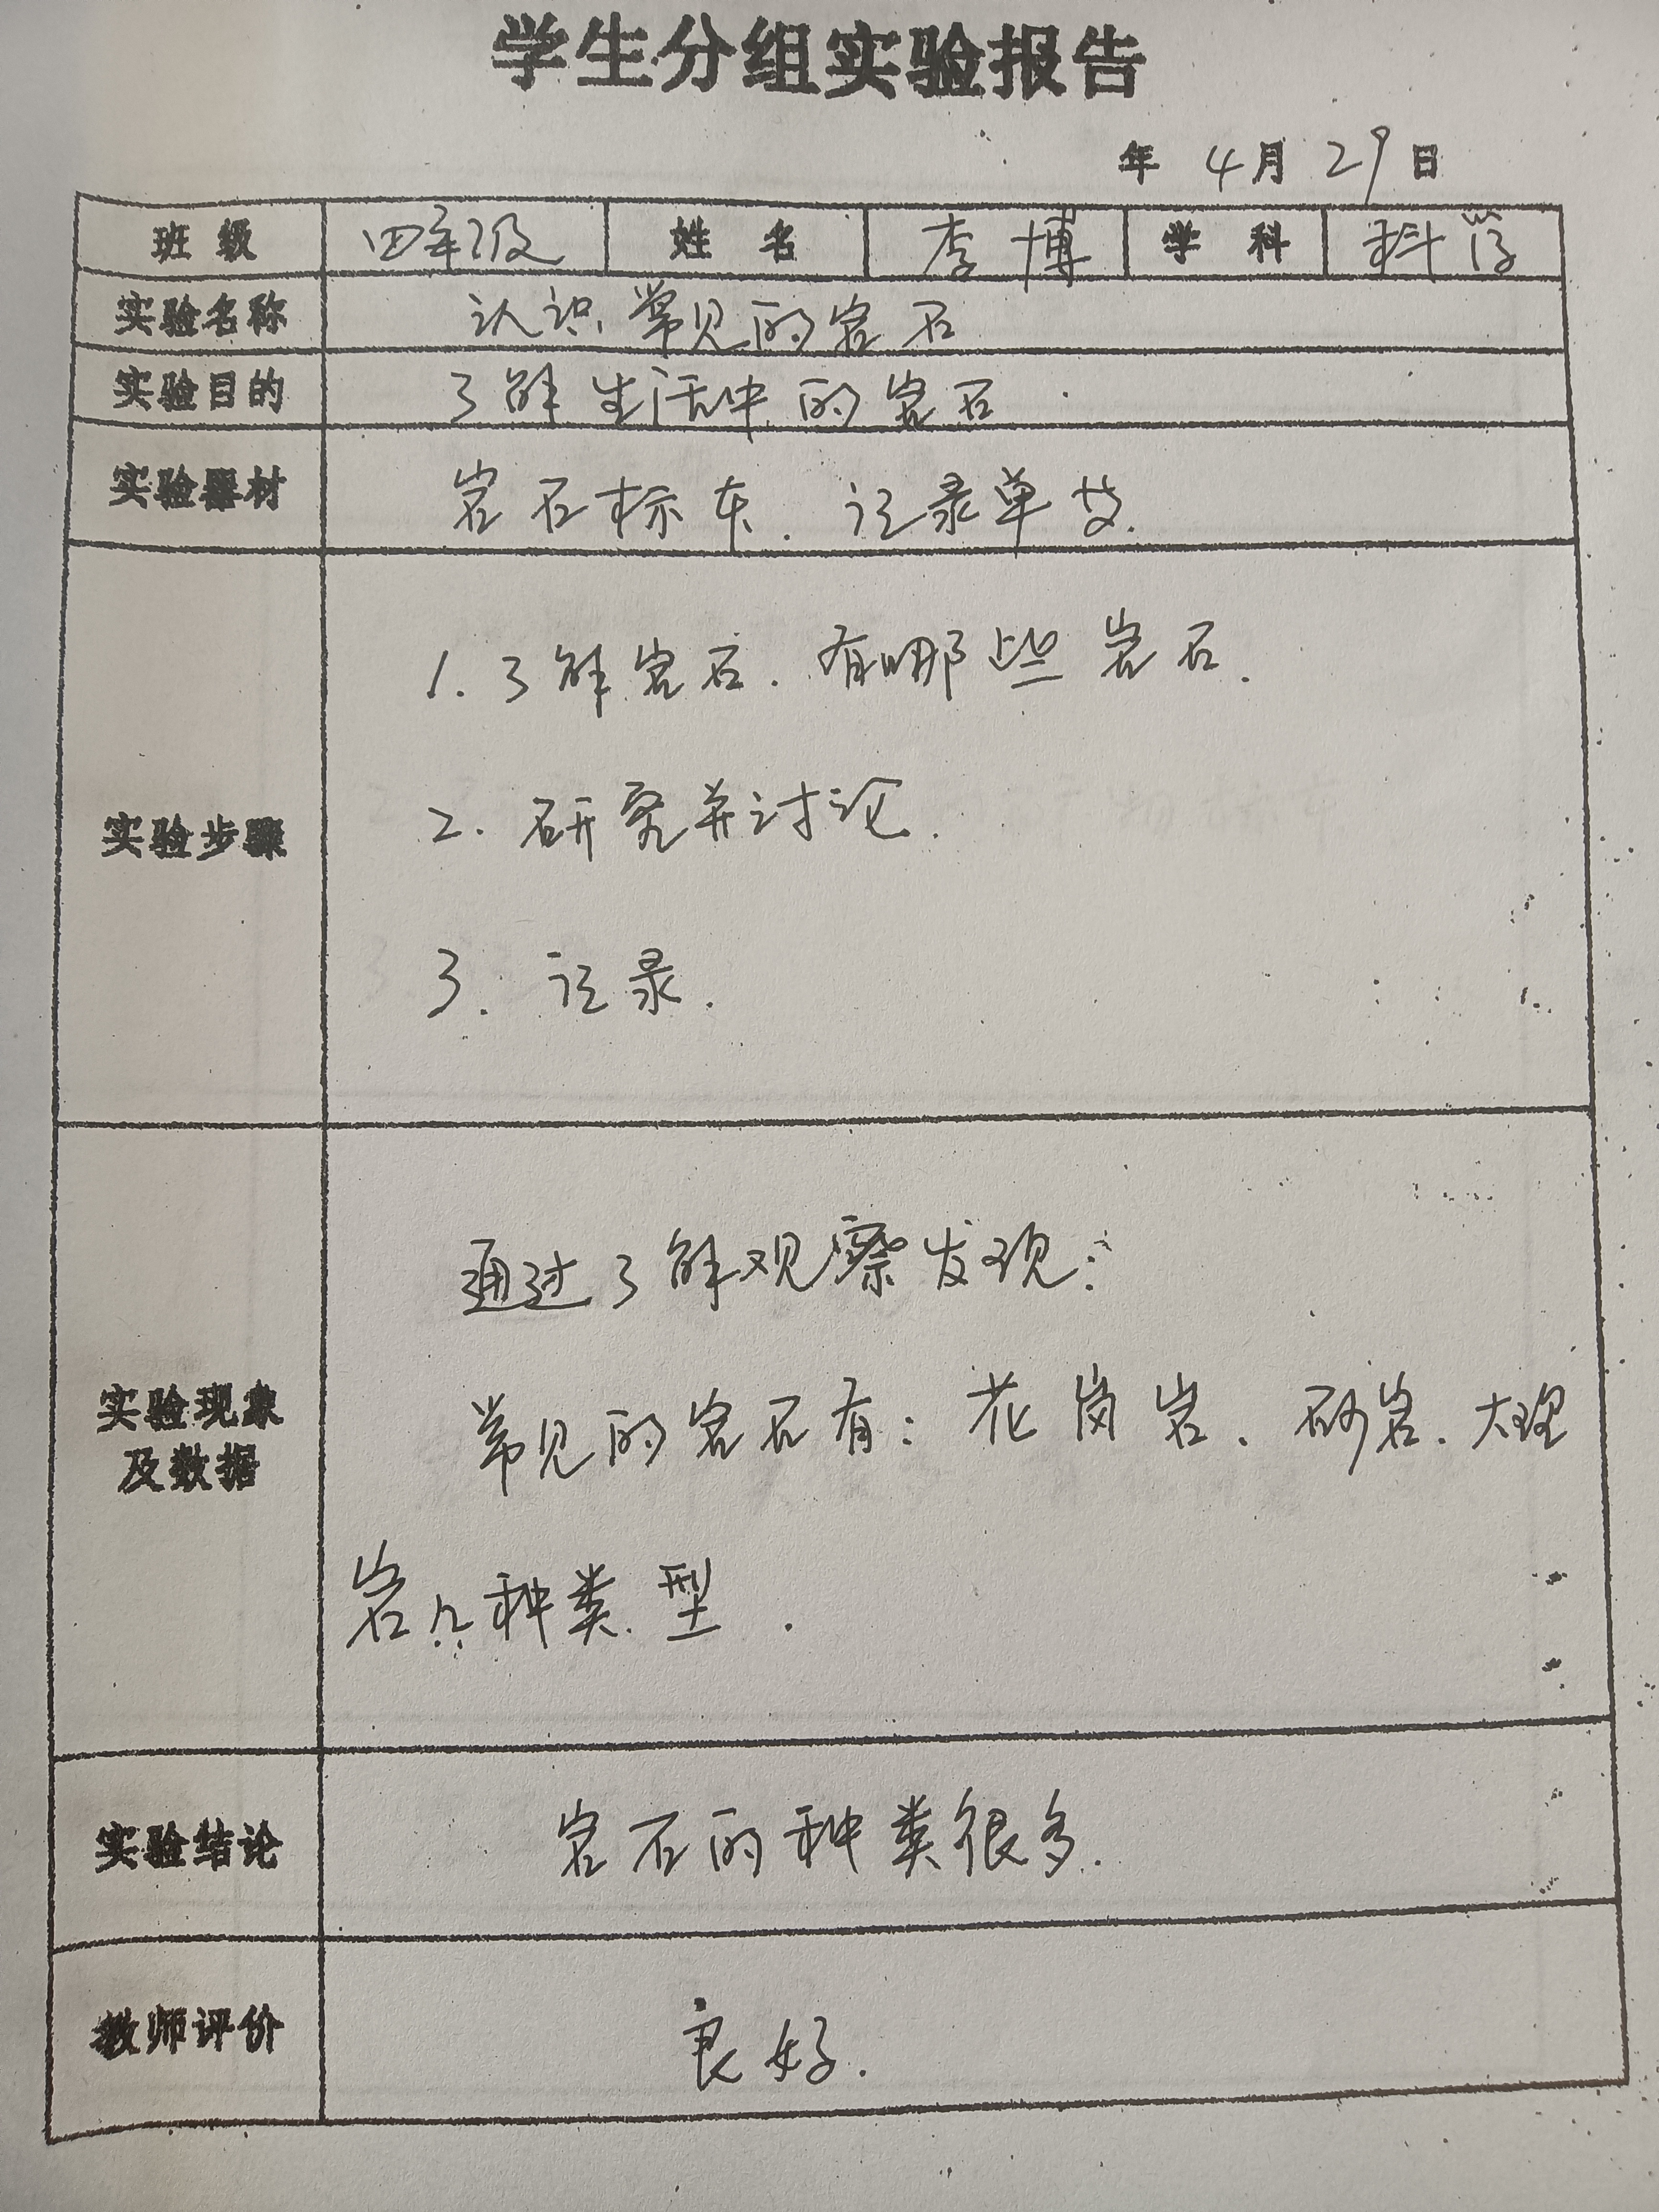 学生分组实验报告
年 4月 29日
班级 四年级 姓名 李博 学科 科学
实验名称 认识常见的岩石
实验目的 了解生活中的岩石
实验器材 岩石标本、记录单
1. 了解岩石、有哪些岩石.
2. 研究并讨论.
实验步骤
3. 记录.
通过了解观察发现:
常见的岩石有: 花岗岩、砂岩、大理
实验现象
及数据
岩几种类型.
实验结论 岩石的种类很多.
教师评价 良好.